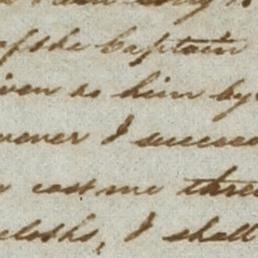 of the Captain
given as him by
ever I succee
cost me three
cloths, I shall